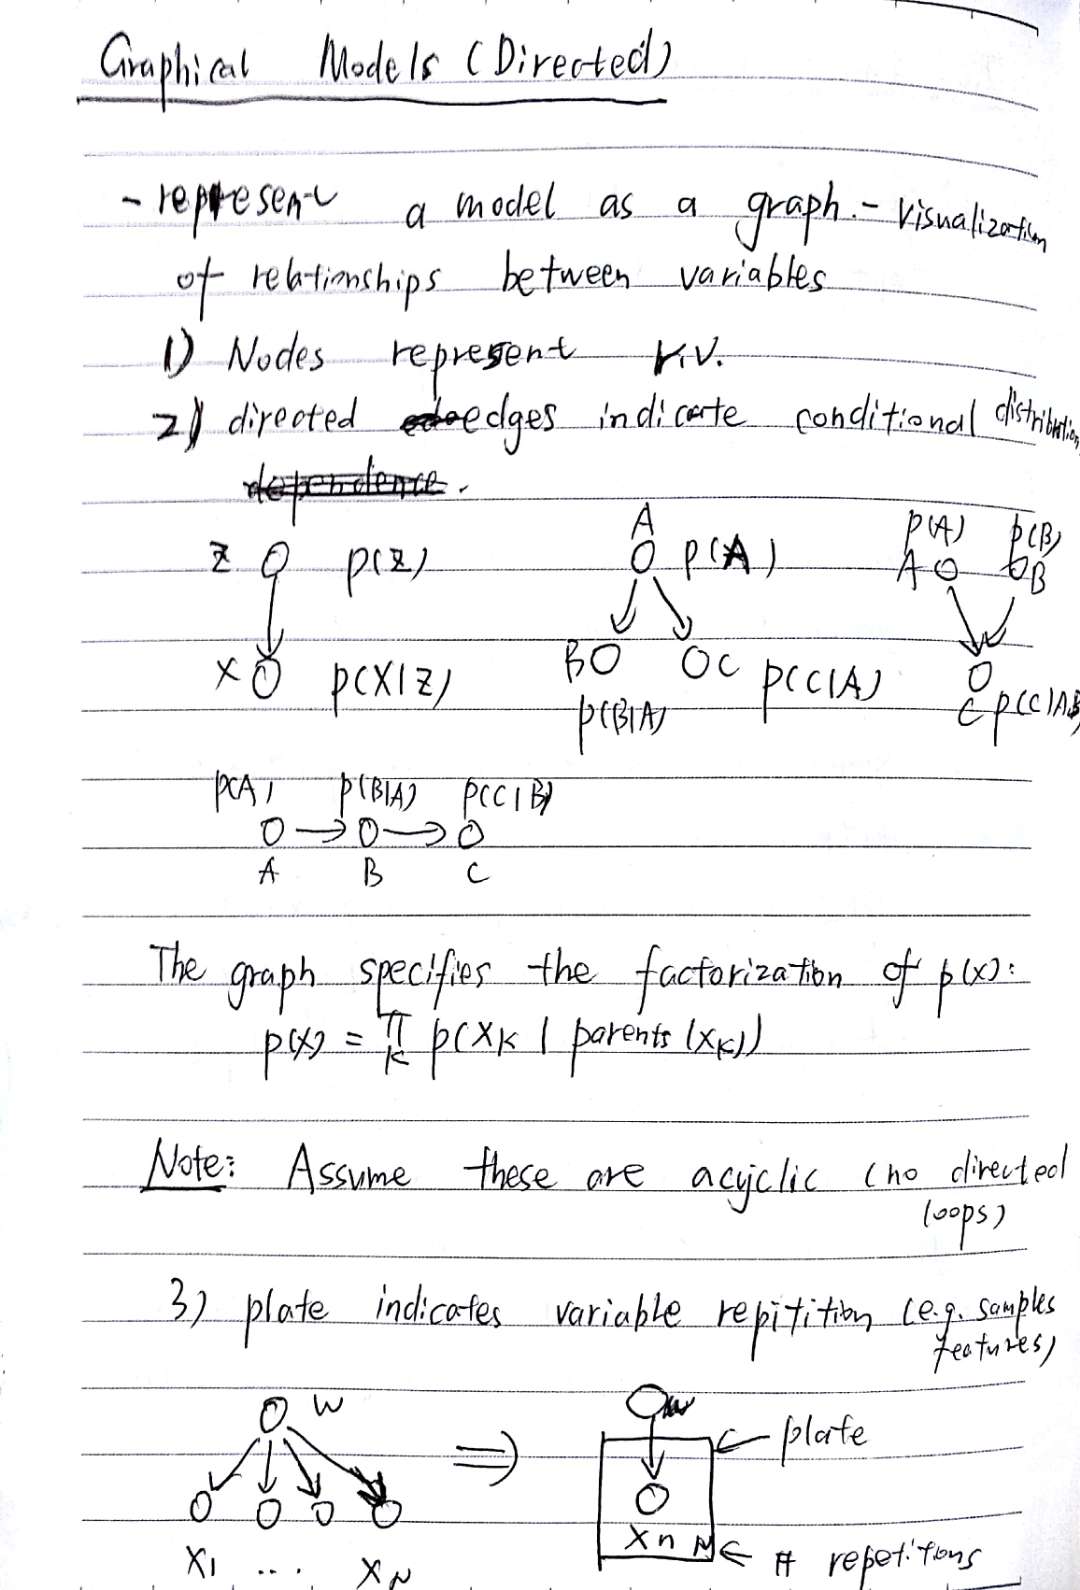 Graphical Models (Directed)
- represent a model as a graph. - Visualization
of relationships between variables
1) Nodes represent r.v.
2) directed edges indicate conditional distribution
dependence.
Z p(Z) A p(A) p(A) p(B)
A B
X p(X|Z) B C p(C|A)
p(B|A) C p(C|AB
p(A) p(B|A) p(C|B)
A B C
The graph specifies the factorization of p(x):
p(x) = π p(xK | parents (xK))
K
Note: Assume these are acyclic (no directed
loops)
3) plate indicates variable repitition (e.g. samples
features)
w w
⇒ plate
x1 .... xN xn N # repetitions